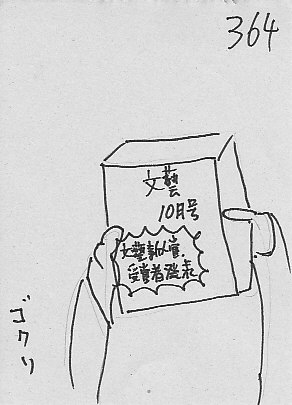 364
文藝
10月号
文藝新人賞、
受賞者発表
ゴクリ